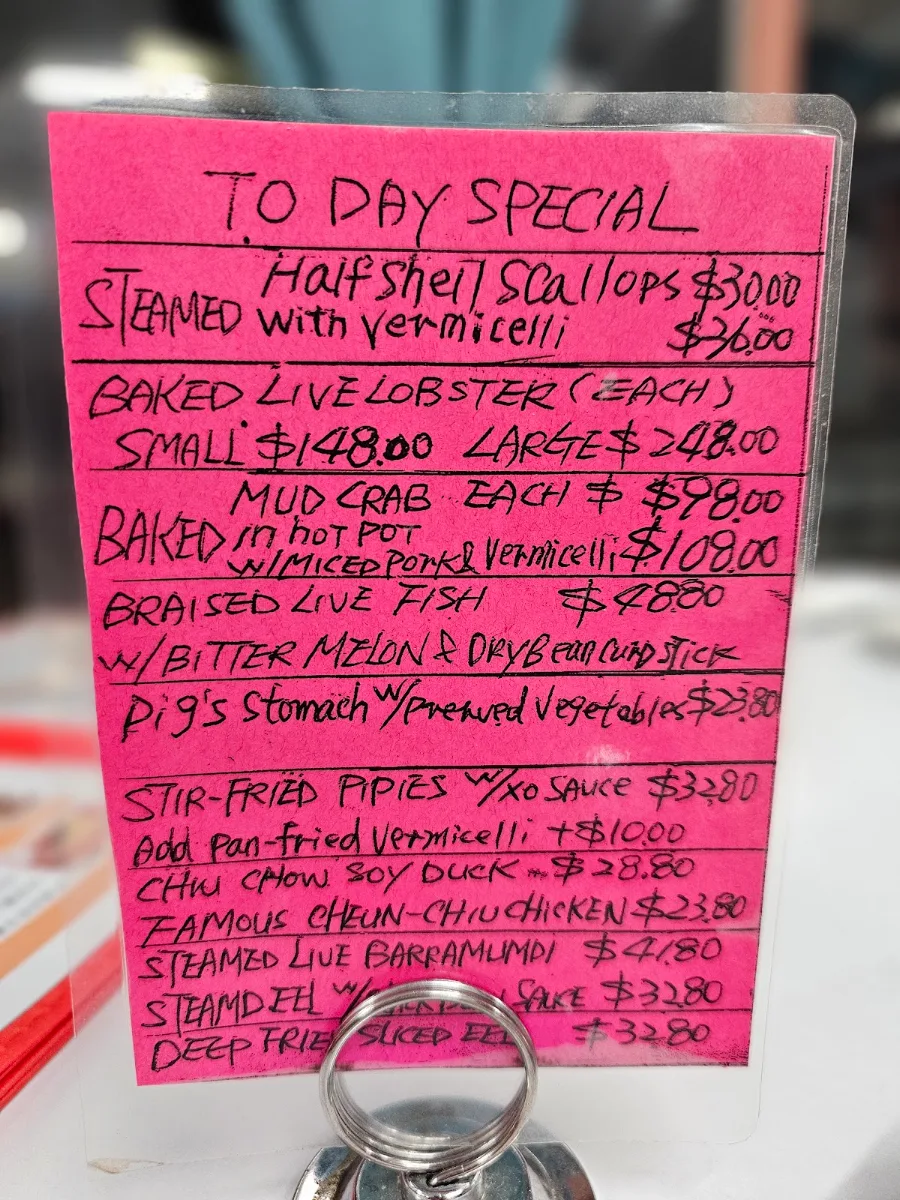 T.O DAY SPECIAL
STEAMED Half Shell Scallops $30.00
with Vermicelli $36.00
BAKED LIVE LOBSTER (EACH)
SMALL $148.00 LARGE $248.00
BAKED MUD CRAB EACH $ $98.00
in hot POT
w/MICED PORK & Vermicelli $108.00
BRAISED LIVE FISH $48.80
W/BITTER MELON & DRY Bean curd STICK
Pig's Stomach w/ Vegetables $23.80
STIR-FRIED PIPIES W/XO SAUCE $32.80
Add Pan-fried Vermicelli +$10.00
CHIU CHOW SOY DUCK $28.80
FAMOUS CHEUN-CHIU CHICKEN $23.80
STEAMED LIVE BARRAMUMDI $41.80
STEAMD EEL W/ SAUCE $32.80
DEEP FRIED SLICED EEL $32.80